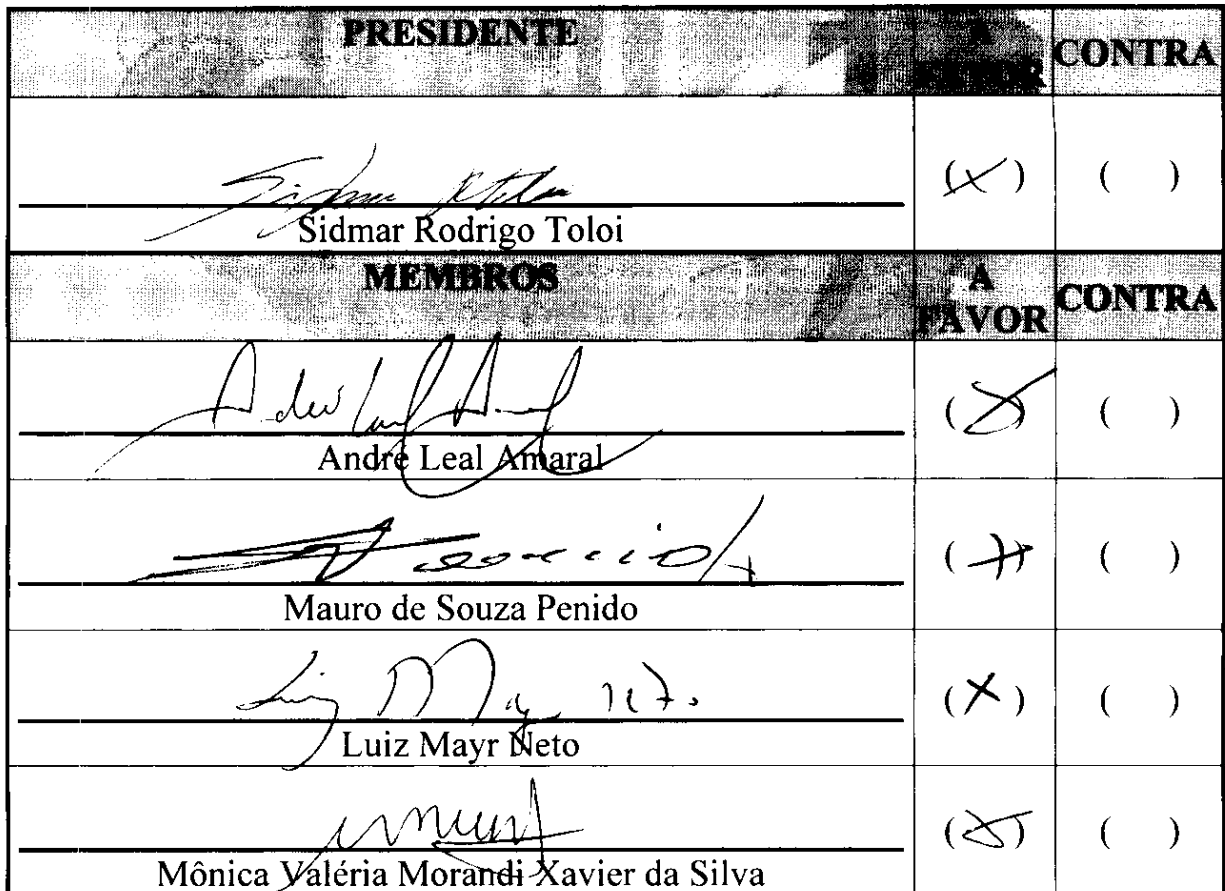 PRESIDENTE A FAVOR CONTRA
Sidmar Rodrigo Toloi (x) ( )
MEMBROS A FAVOR CONTRA
André Leal Amaral (x) ( )
Mauro de Souza Penido (x) ( )
Luiz Mayr Neto
Luiz Mayr Neto (x) ( )
Mônica Valéria Morandi Xavier da Silva (x) ( )